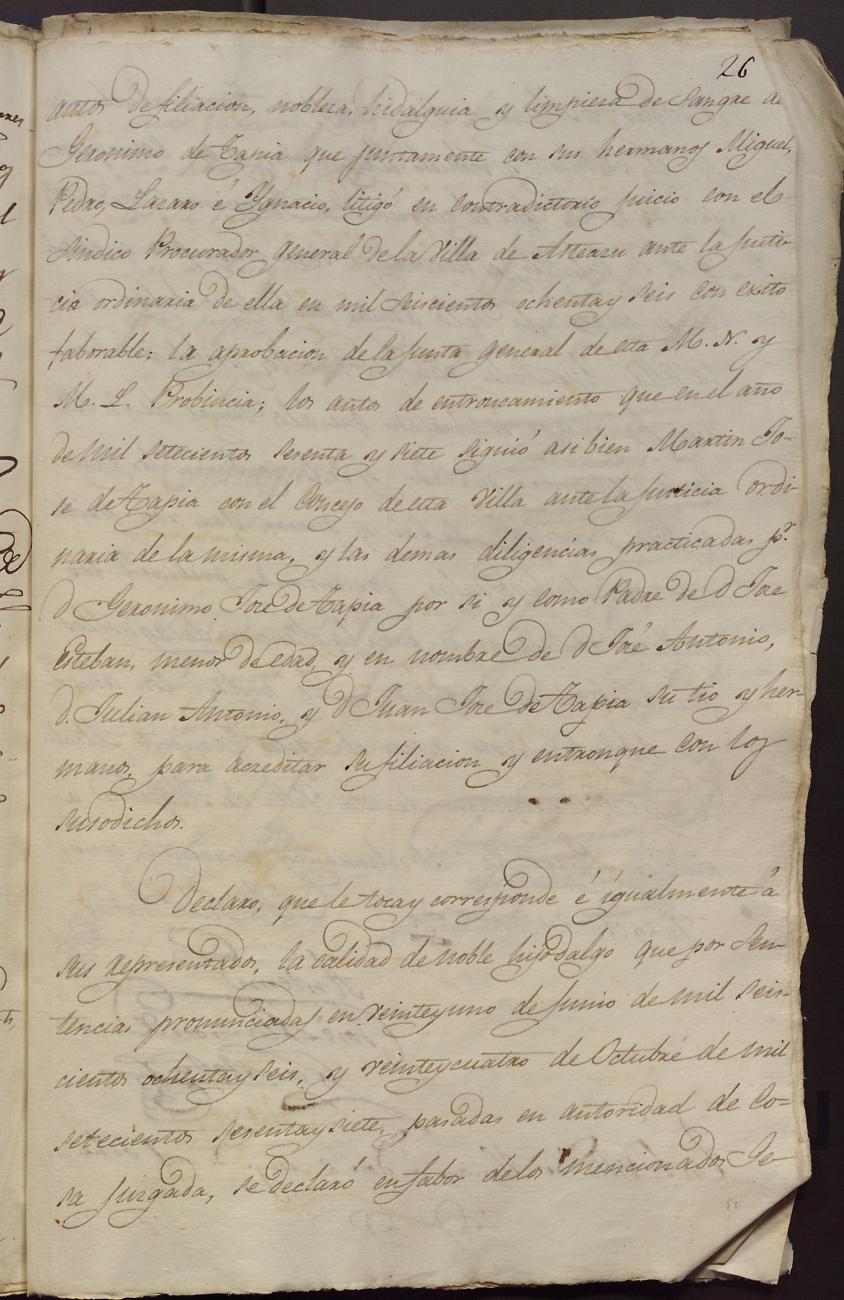 26
autos de filiacion, nobleza, hidalguia y limpieza de sangre de
Geronimo de Tapia que juntamente con sus hermanos Miguel,
Pedro, Lazaro é Ygnacio, litigó en contradictorio juicio con el
Sindico Procurador general de la Villa de Asteasu ante la justi
cia ordinaria de ella en mil seiscientos ochenta y seis con exito
faborable; la aprobacion de la Junta general de esta M. N. y
M. L. Probincia; los autos de entroncamiento que en el año
de mil setecientos sesenta y siete siguió asi bien Martin Jo-
se de Tapia con el Concejo de esta Villa ante la Justicia ordi
naria de la misma, y las demas diligencias practicadas pr.
d Geronimo Jose de Tapia por si y como Padre de d Jose
Esteban, menor de edad, y en nombre de d José Antonio,
d. Julian Antonio, y d Juan Jose de Tapia su tio y her-
manos, para acreditar su filiacion y entronque con los
susodichos.
Declaro, que le toca y corresponde é igualmente á
sus representados, la calidad de noble hijodalgo que por Sen-
tencias pronunciadas en veinte y uno de Junio de mil seis-
cientos ochenta y seis, y veinte y cuatro de Octubre de mil
setecientos sesenta y siete, pasadas en autoridad de Co-
sa juzgada, se declaró en fabor de los mencionados Ge-